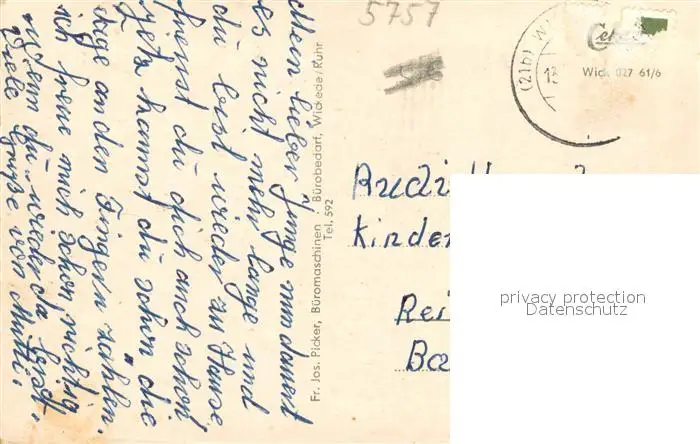 Mein lieber Junge nun dauert
es nicht mehr lange und
du bist wieder zu Hause
freust du dich auch schon
jetz kannst du schon die
Tage an den Fingern zählen.
ich freue mich schon richtig
wenn du wieder da bist.
Viele Grüße von Mutti.
Fr. Jos. Picker, Büromaschinen - Bürobedarf, Wickede/Ruhr
Tel. 592
5757
(21b) W
Ceka
Wick 027 61/6
Rudi
Kinder
Rei
Ba
privacy protection
Datenschutz